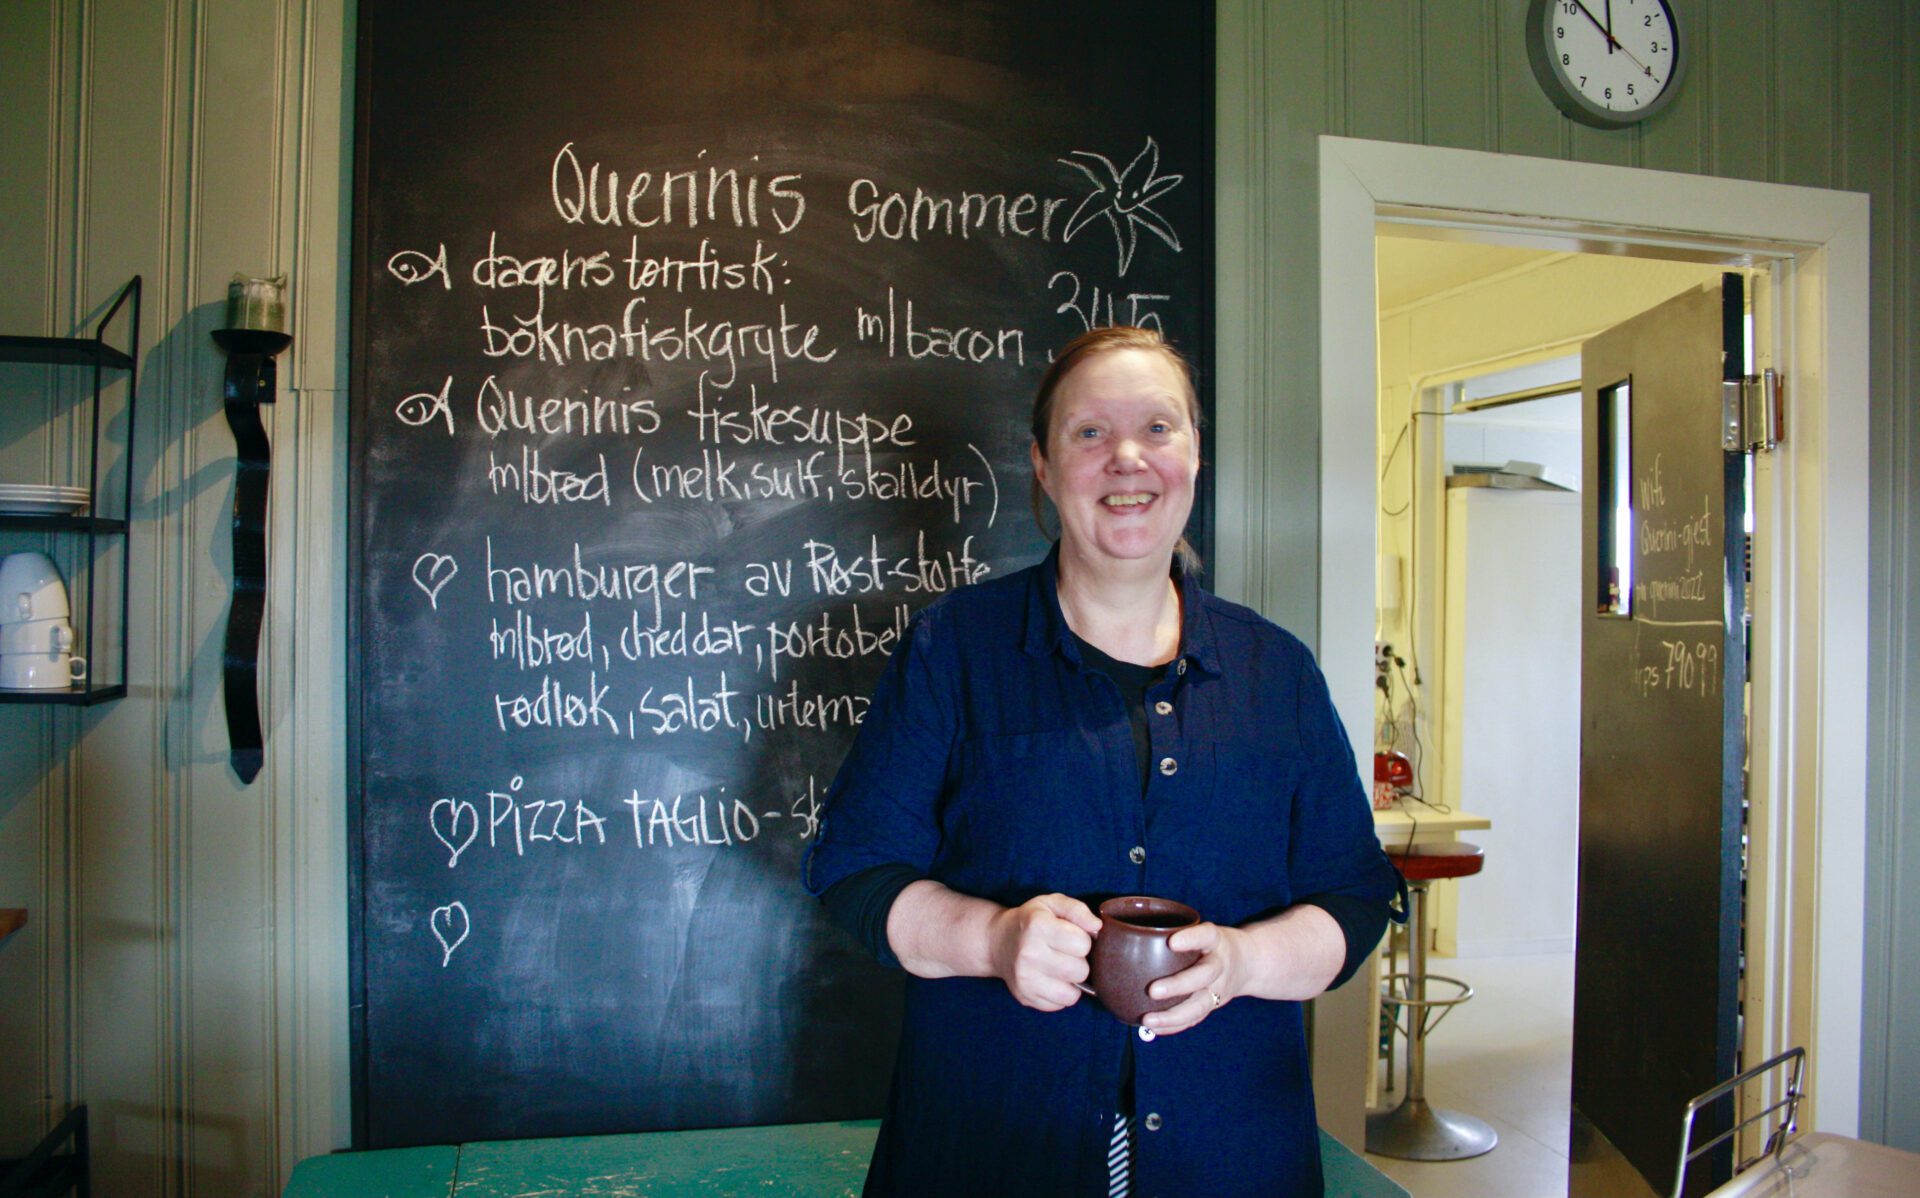 Querinis Sommer
dagens tørrfisk:
boknafiskgryte m/bacon . 345
Querinis fiskesuppe
m/brød (melk, sulf, skalldyr)
hamburger av Røst-storfe
m/brød, cheddar, portobell
rødløk, salat, urtema
PIZZA TAGLIO - sk
10
2
9
3
8
4
7
6
5
wifi
Querini-gjest
querini2022
79099